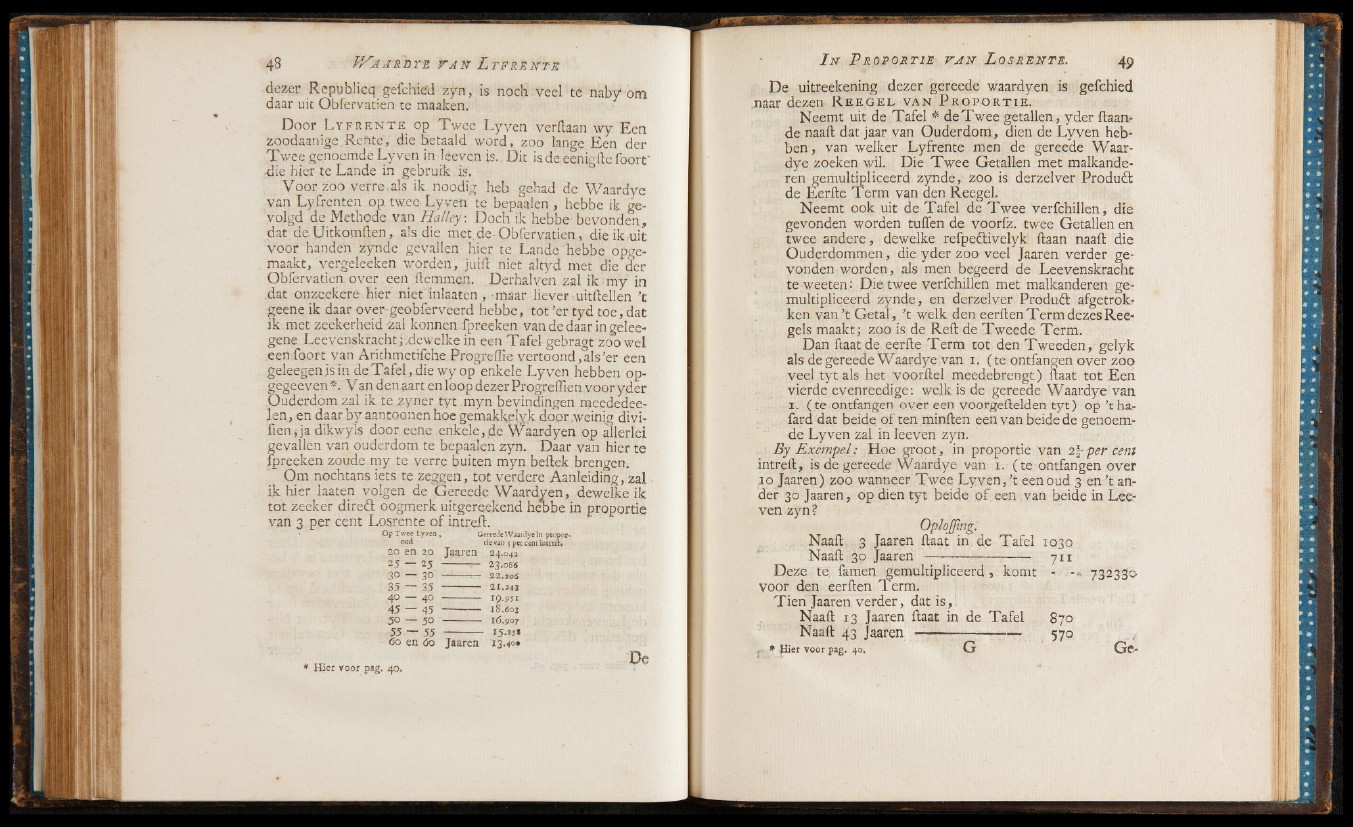 48 WAARDYE VAN LYFRENTE
dezer Republicq geſchied zyn, is noch veel te naby om
daar uit Obſervatien te maaken.
Door LYFRENTE op Twee Lyven verſtaan wy Een
zoodaanige Rente, die betaald word, zoo lange Een der
Twee genoemde Lyven in leeven is. Dit is de eenigſte ſoort
die hier te Lande in gebruik is.
Voor zoo verre als ik noodig heb gehad de Waardye
van Lyfrenten op twee Lyven te bepaalen, hebbe ik ge-
volgd de Methode van Halley: Doch ik hebbe bevonden,
dat de Uitkomſten, als die met de Obſervatien, die ik uit
voor handen zynde gevallen hier te Lande hebbe opge-
maakt, vergeleeken worden, juiſt niet altyd met die der
Obſervatien over een ſtemmen. Derhalven zal ik my in
dat onzeekere hier niet inlaaten, maar liever uitſtellen 't
geene ik daar over geobſerveerd hebbe, tot 'er tyd toe, dat
ik met zeekerheid zal konnen ſpreeken van de daar in gelee-
gene Leevenskracht; dewelke in een Tafel gebragt zoo wel
een ſoort van Arithmetiſche Progreſſie vertoond, als 'er een
geleegen is in de Tafel, die wy op enkele Lyven hebben op-
gegeeven *. Van den aart en loop dezer Progreſſien voor yder
Ouderdom zal ik te zyner tyt myn bevindingen meededee-
len, en daar by aantoonen hoe gemakkelyk door weinig divi-
ſien, ja dikwyls door eene enkele, de Waardyen op allerlei
gevallen van ouderdom te bepaalen zyn. Daar van hier te
ſpreeken zoude my te verre buiten myn beſtek brengen.
Om nochtans iets te zeggen, tot verdere Aanleiding, zal
ik hier laaten volgen de Gereede Waardyen, dewelke ik
tot zeeker direct oogmerk uitgereekend hebbe in proportie
van 3 per cent Losrente of intreſt.
Op Twee Lyven, Gereede Waardye in propor-
oud tie van 3 per cent Intreſt.
20 en 20 Jaaren 24.042
25 — 25 —— 23.086
30 — 30 —— 22.206
35 — 35 —— 21.242
40 — 40 —— 19.951
45 — 45 —— 18.603
50 — 50 —— 16.907
55 — 55 —— 15.
60 en 60 Jaaren 13.40
De
* Hier voor pag. 40.
IN PROPORTIE VAN LOSRENTE. 49
De uitreekening dezer gereede waardyen is geſchied
naar dezen REEGEL VAN PROPORTIE.
Neemt uit de Tafel * de Twee getallen, yder ſtaan-
de naaſt dat jaar van Ouderdom, dien de Lyven heb-
ben, van welker Lyfrente men de gereede Waar-
dye zoeken wil. Die Twee Getallen met malkande-
ren gemultipliceerd zynde, zoo is derzelver Product
de Eerſte Term van den Reegel.
Neemt ook uit de Tafel de Twee verſchillen, die
gevonden worden tuſſen de voorſz. twee Getallen en
twee andere, dewelke reſpectivelyk ſtaan naaſt die
Ouderdommen, die yder zoo veel Jaaren verder ge-
vonden worden, als men begeerd de Leevenskracht
te weeten: Die twee verſchillen met malkanderen ge-
multipliceerd zynde, en derzelver Product afgetrok-
ken van 't Getal, 't welk den eerſten Term dezes Ree-
gels maakt; zoo is de Reſt de Tweede Term.
Dan ſtaat de eerſte Term tot den Tweeden, gelyk
als de gereede Waardye van 1. (te ontfangen over zoo
veel tyt als het voorſtel meedebrengt) ſtaat tot Een
vierde evenreedige: welk is de gereede Waardye van
1. (te ontfangen over een voorgeſtelden tyt) op 't ha-
ſard dat beide of ten minſten een van beide de genoem-
de Lyven zal in leeven zyn.
By Exempel: Hoe groot, in proportie van 2½ per cent
intreſt, is de gereede Waardye van 1. (te ontfangen over
10 Jaaren) zoo wanneer Twee Lyven, 't een oud 3 en 't an-
der 30 Jaaren, op dien tyt beide of een van beide in Lee-
ven zyn?
Oploſſing.
Naaſt 3 Jaaren ſtaat in de Tafel 1030
Naaſt 30 Jaaren —— 711
Deze te ſamen gemultipliceerd, komt - - 732330
voor den eerſten Term.
Tien Jaaren verder, dat is,
Naaſt 13 Jaaren ſtaat in de Tafel 870
Naaſt 43 Jaaren —— 570
* Hier voor pag. 40. G Ge-